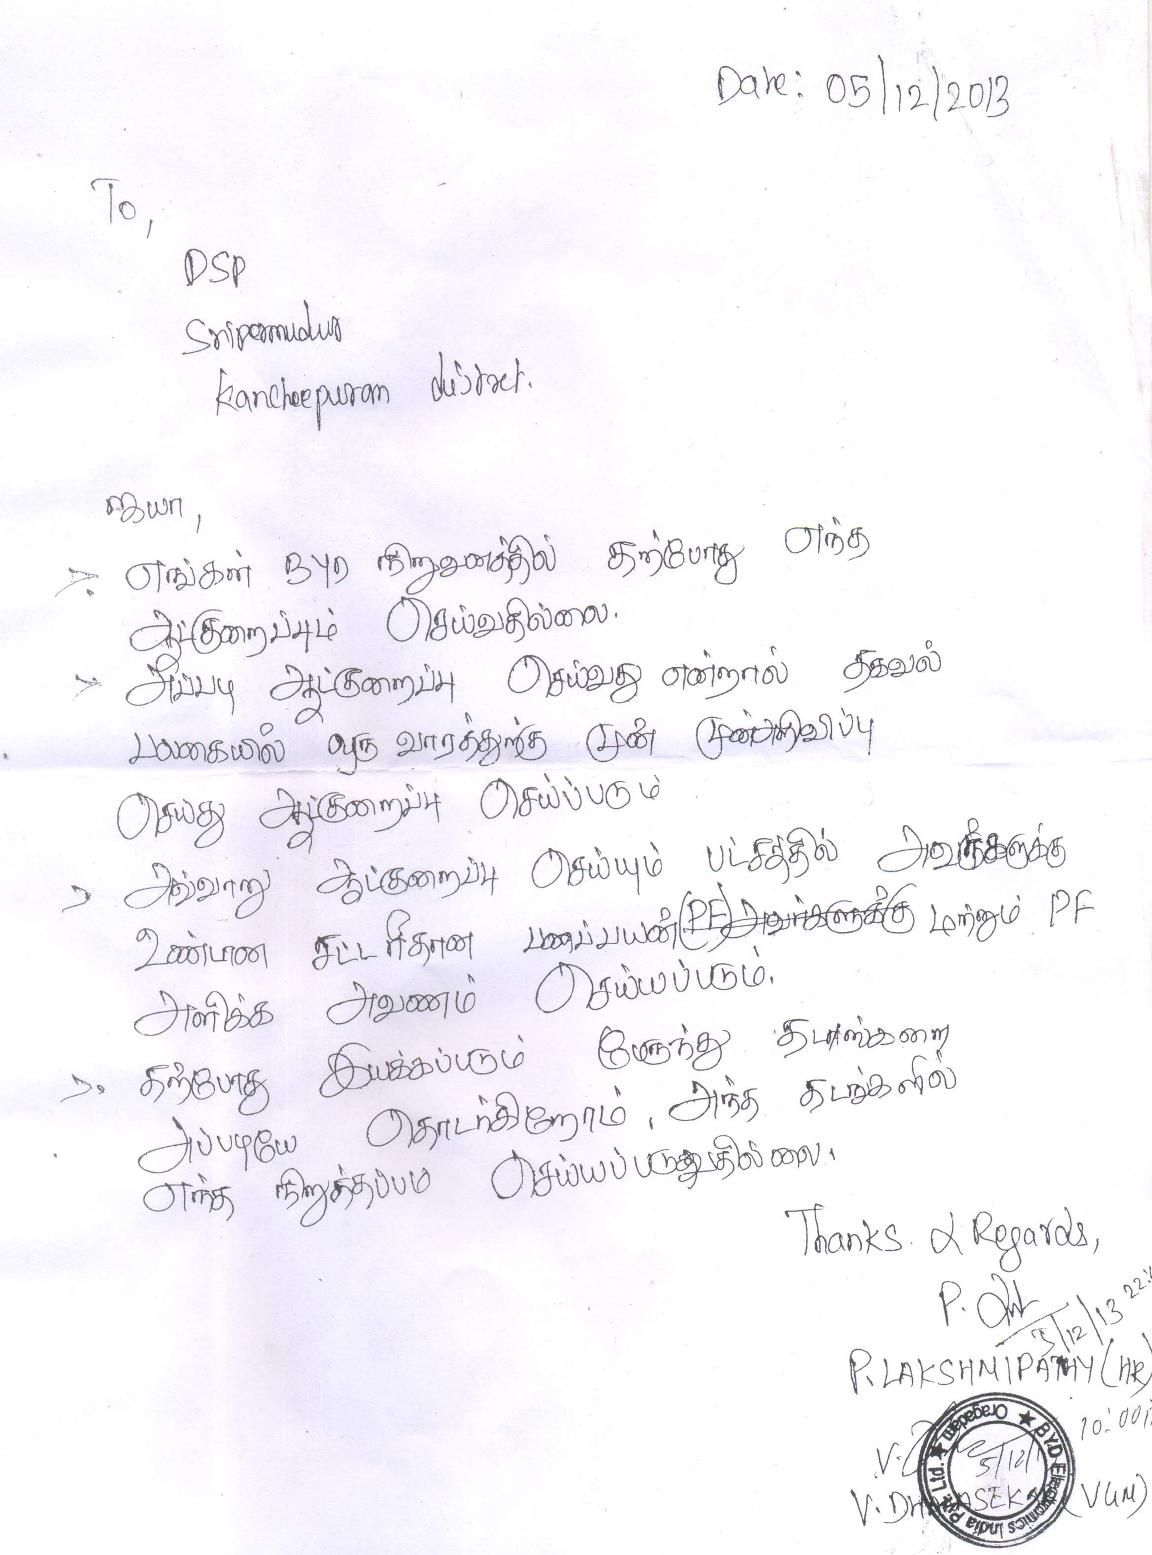 Date: 05/12/2013
To,
DSP
Sripermudur
Kancheepuram district.
ஐயா,
எங்கள் BYD நிறுவனத்தில் தற்போது எந்த
ஆட்குறைப்பும் செய்வதில்லை.
அப்படி ஆட்குறைப்பு செய்வது என்றால் தகவல்
பலகையில் ஒரு வாரத்துற்கு முன் முன்அறிவிப்பு
செய்து ஆட்குறைப்பு செய்ப்படும்
அவ்வாறு ஆட்குறைப்பு செய்யும் பட்சத்தில் அவர்களுக்கு
உண்டான சட்டரீதான பணப்பயன் (PF) அவர்களுக்கு மற்றும் PF
அளிக்க அவணம் செய்யப்படும்.
தற்போது இயக்கப்படும் பேருந்து தடங்களை
அப்படியே தொடர்கிறோம், அந்த தடங்களில்
எந்த நிறுத்தப்பம் செய்யப்படுவதில்லை.
Thanks & Regards,
P.
5/12/13
P. LAKSHMIPATHY (HR)
10:00
V.
5/12/1
V. DHANASEKA (VGM)
BYD Electronics India Pvt. Ltd. ★ Oragadam ★